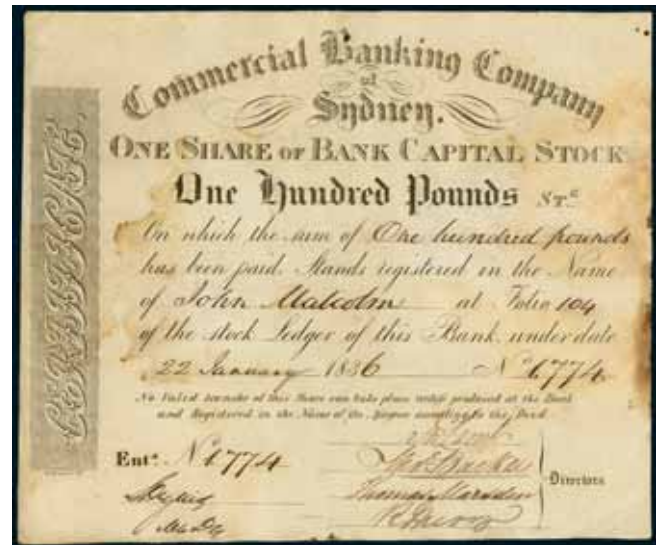 Commercial Banking Company
of
Sydney.
ONE SHARE OF BANK CAPITAL STOCK
One Hundred Pounds STG
On which the sum of One hundred pounds
has been paid. Stands registered in the Name
of John Malcolm at Folio 104
of the stock Ledger of this Bank, under date
22 January 1836 No 1774
No Valid transfer of this Share can take place unless produced at the Bank
and Registered in the Name of the
the Bank
Entd. No 1774
Thomas Marsden
Directors